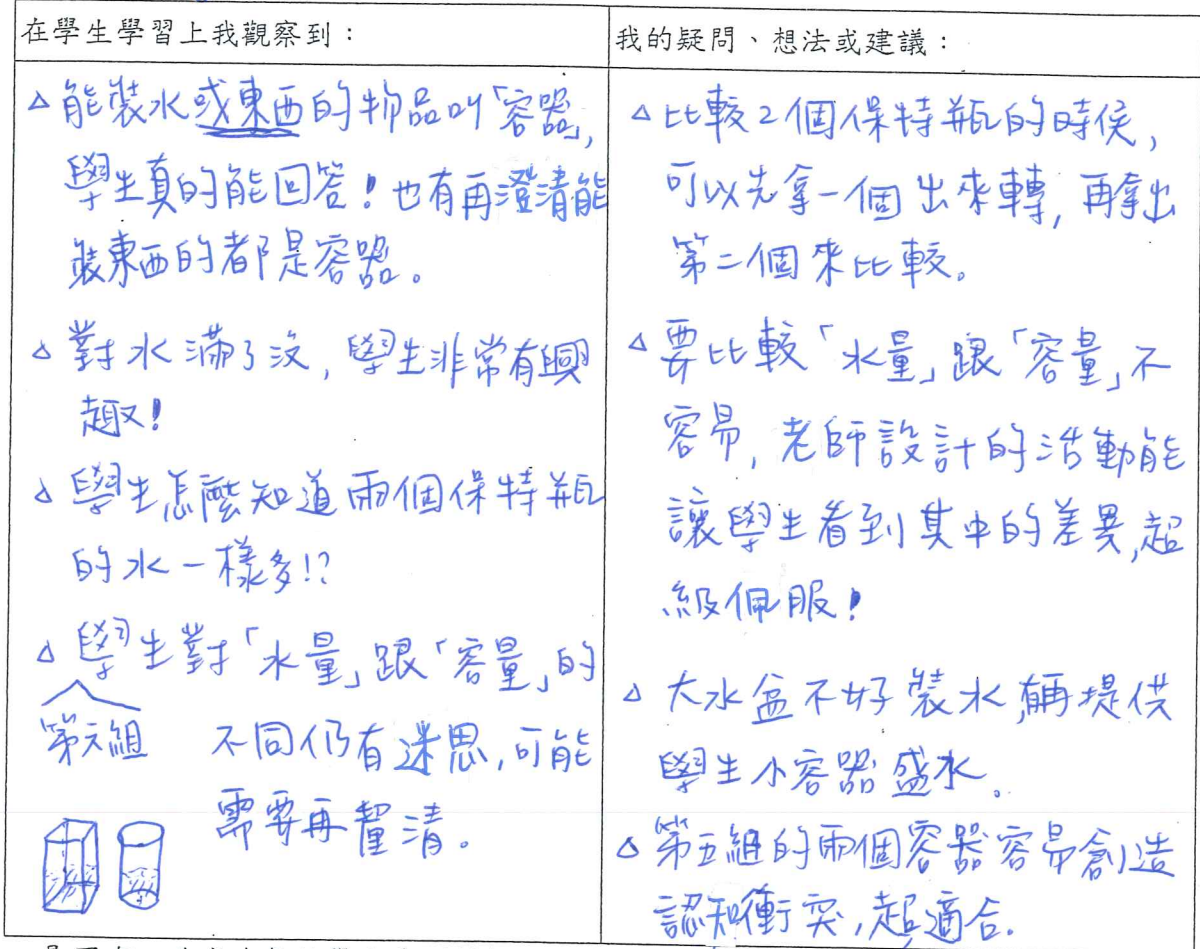 在學生學習上我觀察到：
△能裝水或東西的物品叫「容器」，
學生真的能回答！也有再澄清能
裝東西的都是容器。
△對水滿了沒，學生非常有興
趣！
△學生怎麼知道兩個保特瓶
的水一樣多!?
△學生對「水量」跟「容量」的
第六組
不同仍有迷思，可能
需要再釐清。
我的疑問、想法或建議：
△比較2個保特瓶的時侯，
可以先拿一個出來轉，再拿出
第二個來比較。
△要比較「水量」跟「容量」不
容易，老師設計的活動能
讓學生看到其中的差異，超
級佩服！
△大水盆不好裝水，提供
學生小容器盛水。
△第五組的兩個容器容易創造
認知衝突，超適合。